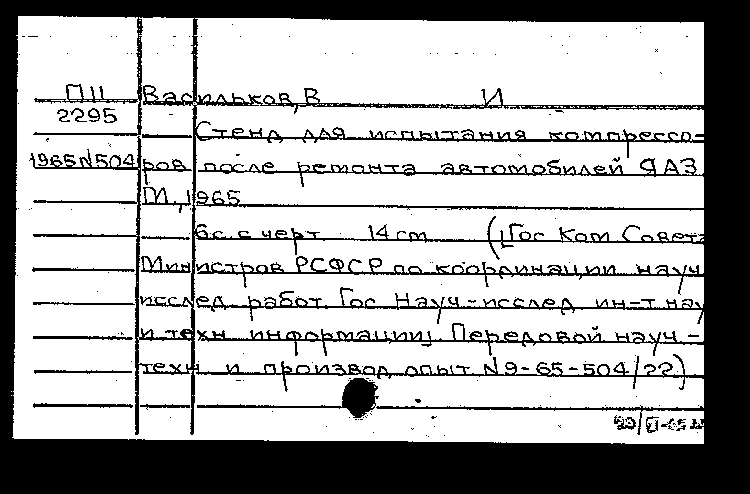 П11 Васильков, В И
2295
Стенд для испытания компрессо-
1965 N504 ров после ремонта автомобилей ЯАЗ.
М., 1965
6 с. с черт 14 см ([Гос Ком Совета
Министров РСФСР по координации науч
исслед работ. Гос Науч-исслед ин-т нау
и техн информации]. Передовой науч-
техн и производ опыт N9-65-504/22)